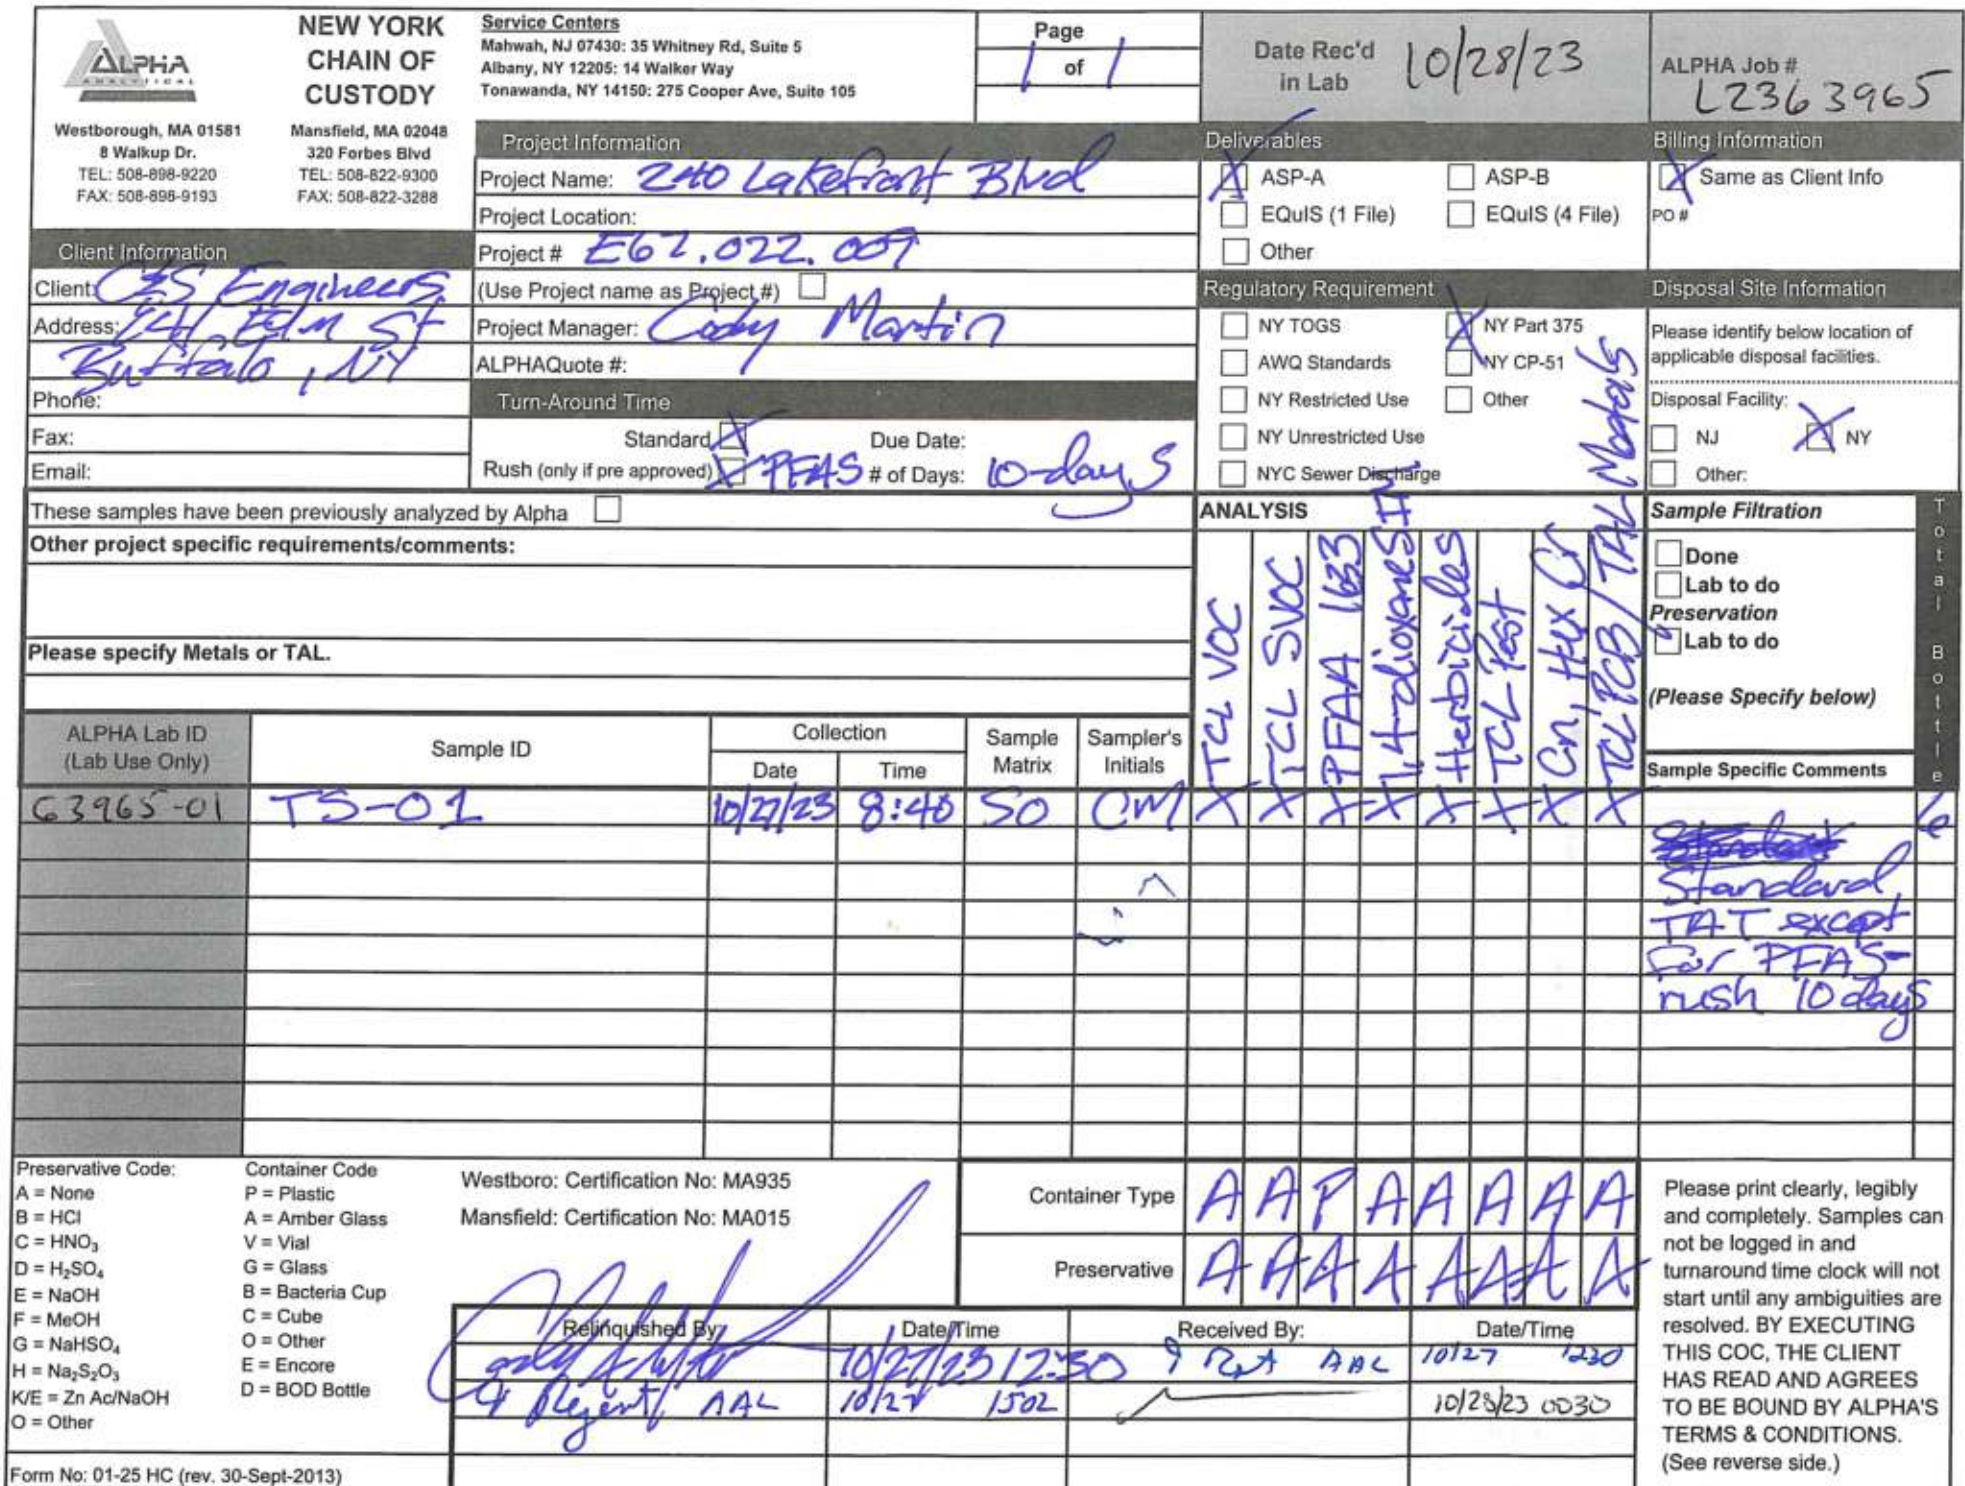 ALPHA
ANALYTICAL
NEW YORK
CHAIN OF
CUSTODY
Westborough, MA 01581
8 Walkup Dr.
TEL: 508-898-9220
FAX: 508-898-9193
Mansfield, MA 02048
320 Forbes Blvd
TEL: 508-822-9300
FAX: 508-822-3288
Service Centers
Mahwah, NJ 07430: 35 Whitney Rd, Suite 5
Albany, NY 12205: 14 Walker Way
Tonawanda, NY 14150: 275 Cooper Ave, Suite 105
Page
1 of 1
Date Rec'd
in Lab
10/28/23
ALPHA Job #
L2363965
Client Information
Client:
Engineers
Address: 141 Elm St
Buffalo, NY
Phone:
Fax:
Email:
Project Information
Project Name: 240 Lakefront Blvd
Project Location:
Project # E62.022.009
(Use Project name as Project #)
Project Manager: Cody Martin
ALPHAQuote #:
Turn-Around Time
Standard X Due Date:
Rush (only if pre approved) X PFAS # of Days: 10-days
Deliverables
X ASP-A ASP-B
EQuIS (1 File) EQuIS (4 File)
Other
Regulatory Requirement
NY TOGS X NY Part 375
AWQ Standards NY CP-51
NY Restricted Use Other
NY Unrestricted Use
NYC Sewer Discharge
Billing Information
X Same as Client Info
PO #
Disposal Site Information
Please identify below location of
applicable disposal facilities.
Disposal Facility:
NJ X NY
Other:
These samples have been previously analyzed by Alpha
Other project specific requirements/comments:
Please specify Metals or TAL.
ANALYSIS
TCL VOC
TCL SVOC
PFAA 1633
1,4-dioxane SIM
Herbicides
TCL Pest
Cn, Hex Cr
TCL PCB / TAL Metals
Sample Filtration
Done
Lab to do
Preservation
Lab to do
(Please Specify below)
Total Bottle
ALPHA Lab ID
(Lab Use Only)
Sample ID
Collection
Date Time
Sample
Matrix
Sampler's
Initials
Sample Specific Comments
63965-01 TS-01 10/27/23 8:40 SO CM X X X X X X X X
Standard
TAT except
for PFAS-
rush 10 days
Preservative Code:
A = None
B = HCl
C = HNO₃
D = H₂SO₄
E = NaOH
F = MeOH
G = NaHSO₄
H = Na₂S₂O₃
K/E = Zn Ac/NaOH
O = Other
Container Code
P = Plastic
A = Amber Glass
V = Vial
G = Glass
B = Bacteria Cup
C = Cube
O = Other
E = Encore
D = BOD Bottle
Westboro: Certification No: MA935
Mansfield: Certification No: MA015
Container Type A A P A A A A A
Preservative A A A A A A A A
Relinquished By: Date/Time Received By: Date/Time
10/27/23 12:30 AAL 10/27 1230
AAL 10/27 1502 10/28/23 0030
Please print clearly, legibly
and completely. Samples can
not be logged in and
turnaround time clock will not
start until any ambiguities are
resolved. BY EXECUTING
THIS COC, THE CLIENT
HAS READ AND AGREES
TO BE BOUND BY ALPHA'S
TERMS & CONDITIONS.
(See reverse side.)
Form No: 01-25 HC (rev. 30-Sept-2013)